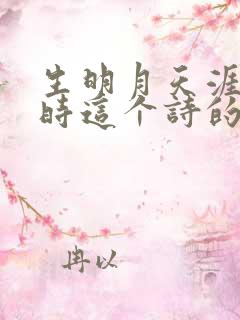 生明月天涯
時這个詩的
冉以